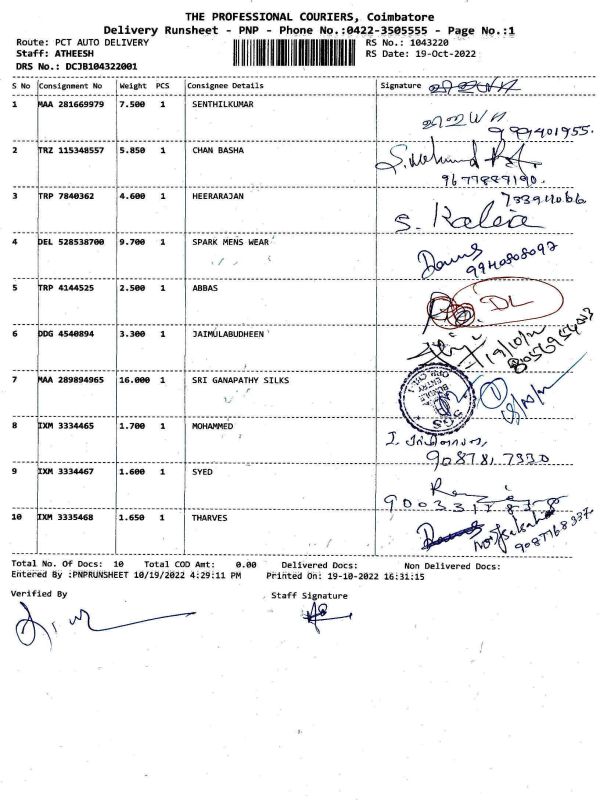 THE PROFESSIONAL COURIERS, Coimbatore
Delivery Runsheet - PNP - Phone No.:0422-3505555 - Page No.:1
Route: PCT AUTO DELIVERY RS No.: 1043220
Staff: ATHEESH RS Date: 19-Oct-2022
DRS No.: DCJB104322001
S No Consignment No Weight PCS Consignee Details Signature
1 MAA 281669979 7.500 1 SENTHILKUMAR
2 TRZ 115348557 5.850 1 CHAN BASHA
9677889190.
3 TRP 7840362 4.600 1 HEERARAJAN
S. Kalea
4 DEL 528538700 9.700 1 SPARK MENS WEAR
9940808092
5 TRP 4144525 2.500 1 ABBAS
DL
6 DDG 4540894 3.300 1 JAIMULABUDHEEN
19/10/22
7 MAA 289894965 16.000 1 SRI GANAPATHY SILKS
8 IXM 3334465 1.700 1 MOHAMMED
90878 7330
9 IXM 3334467 1.600 1 SYED
10 IXM 3335468 1.650 1 THARVES
9087768337.
Total No. Of Docs: 10 Total COD Amt: 0.00 Delivered Docs: Non Delivered Docs:
Entered By :PNPRUNSHEET 10/19/2022 4:29:11 PM Printed On: 19-10-2022 16:31:15
Verified By Staff Signature